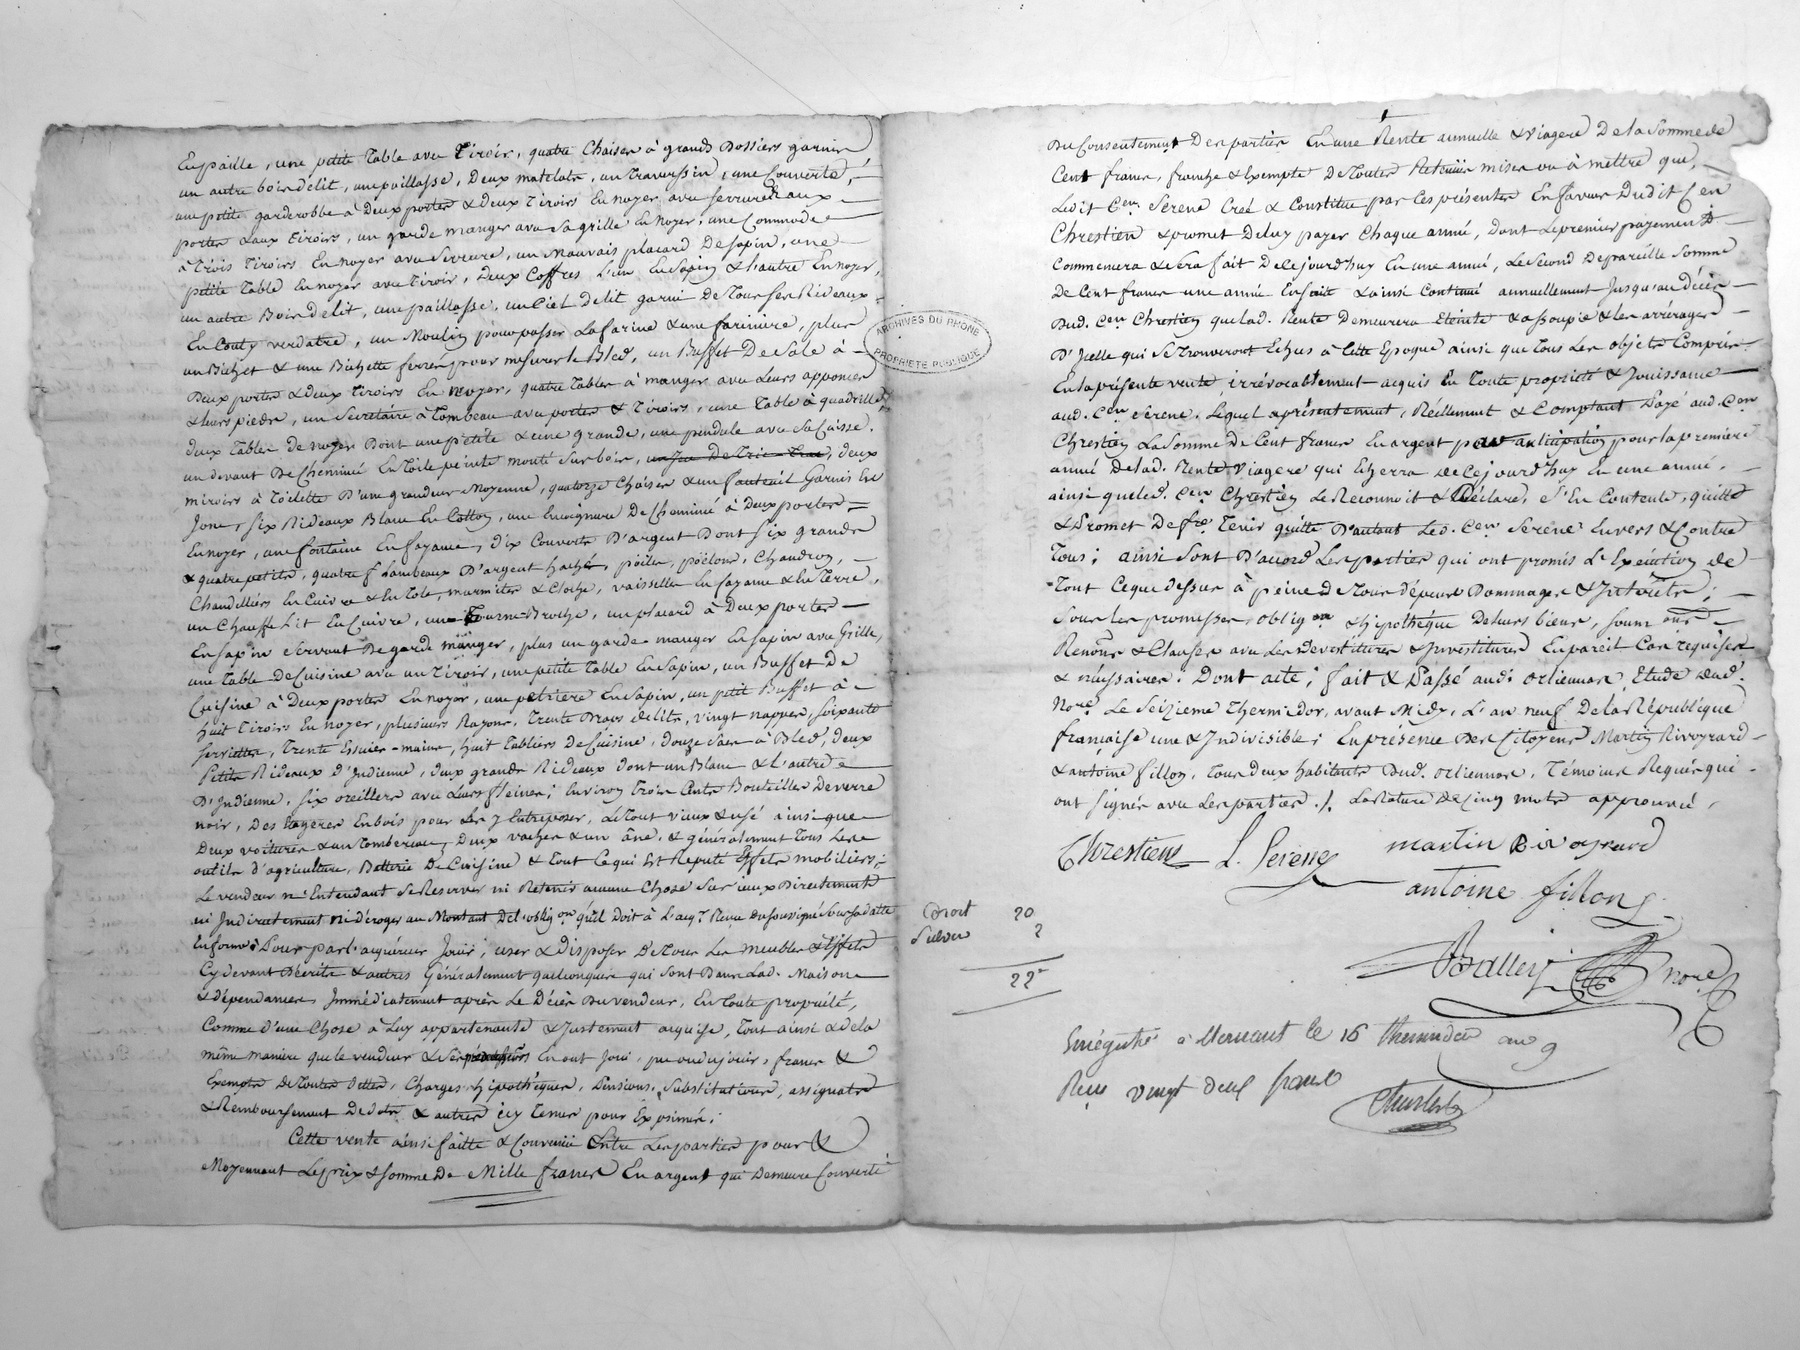 En paille, une petite table avec tiroir, quatre chaises à grands dossiers garnies
un autre bois de lit, une paillasse, deux matelats, un traverssin, une couverte,
une petite garderobbe à deux portes & deux tiroirs en noyer avec serrures aux
portes & aux tiroirs, un garde manger avec sa grille en noyer, une commode
à trois tiroirs en noyer avec serrure, un mauvais placard de sapin, une
petite table en noyer avec tiroir, deux coffres l'un en sapin & l'autre en noyer,
un autre bois de lit, une paillasse, un ciel de lit garni de tous ses rideaux
en verdatre, un moulin pour passer la farine & une farinière, plus
un bichet & une bichette ferrés pour mesurer le bled, un buffet de sale à
deux portes & deux tiroirs en noyer, quatre tables à manger avec leurs
& leurs pieds, un secretaire à tombeau avec portes & tiroirs, une table à quadrille,
deux tables de noyer dont une petite & une grande, une pendule avec sa caisse,
un devant de cheminée en toile peinte monté sur bois, un jeu de tric-trac, deux
miroirs à toilette d'une grandeur moyenne, quatorze chaises & un fauteuil garnis en
jonc, six rideaux blanc en cotton, une encoignure de cheminée à deux portes
en noyer, une fontaine en fayance, dix couverts d'argent dont six grands
& quatre petits, quatre flambeaux d'argent haché, poêles, poëlons, chaudron,
chandelliers en cuivre & en tole, marmites & cloche, vaisselles en fayance & en terre,
un chauffe lit en cuivre, un tourne-broche, un placard à deux portes
en sapin servant de garde manger, plus un garde-manger en sapin avec grille,
une table de cuisine avec un tiroir, une petite table en sapin, un buffet de
cuisine à deux portes en noyer, une petriere en sapin, un petit buffet à
huit tiroirs en noyer, plusieurs rayons, trente draps de lits, vingt nappes, soixante
serviettes, trente essuie-mains, huit tabliers de cuisine, douze sacs à bled, deux
petits rideaux d'indienne, deux grands rideaux dont un blanc & l'autre
d'indienne, six oreillers avec leurs ; environ trois cents bouteilles de verre
noir, des en bois pour les y entreposer, le tout vieux & usé ainsi que
deux voitures & un tombereau, deux vaches & un âne, & généralement tous les
outils d'agriculture, batterie de cuisine & tout ce qui est reputé effets mobiliers;
le vendeur n'entendant se reserver ni retenir aucune chose sur iceux directement
ni indirectement ni déroger au montant de l'oblig.on qu'il doit à l'acq.r sous sa datte
en forme; pour par l'acquéreur jouir, user & disposer de tous les meubles & effets
cy devant décrits & autres généralement quelconques qui sont dans lad. maison
& dépendances immédiatement après le décès du vendeur, en toute propriété,
comme d'une chose à luy appartenante & justement acquise, tout ainsi & de la
même maniere que le vendeur & ses en ont joui, pu ou dû jouir, francs &
exempts de toutes dettes, charges, hipothèques, pensions, substitutions, assignats
& remboursement de dots & autres icy tenus pour exprimés;
Cette vente ainsi faitte & convenüe entre les parties pour &
moyennant le prix & somme de mille francs en argent qui demeure converti
ARCHIVES DU RHONE
PROPRIETE PUBLIQUE
du consentement des parties en une rente annuelle & viagere de la somme de
cent francs, franche & exempte de toutes retenües mises ou à mettre que,
ledit c.en Serene créé & constitue par ces présentes en faveur dudit c.en
Chrestien & promet de luy payer chaque année, dont le premier payement
commencera & sera fait de ce jourd'huy en une année, le second de pareille somme
de cent francs une année ensuite & ainsi continué annuellement jusqu'au décès
dud. c.en Chrestien que lad. rente demeurera eteinte & assoupie & les arrérages
d'icelle qui se trouveront echus à cette epoque ainsi que tous les objets compris
en la présente vente irrévocablement acquis en toute propriété & jouissance
aud. c.en Serene. Lequel a présentement, réellement & comptant payé aud. c.en
Chrestien la somme de cent francs en argent par anticipation pour la premiere
année de lad. rente viagere qui echerra de ce jourd'huy en une année,
ainsi que led. c.en Chrestien le reconnoit & déclare, s'en contente, quitte
& promet de f.re tenir quitte d'autant led. c.en Serene envers & contre
tous; ainsi sont d'acord les parties qui ont promis l'exécution de
tout ce que dessus à peine de tous dépens dommages & intérêts;
sous les promesses, oblig.on & hipothèque de leurs biens, soum.ons
renons & clauses avec les devestitures & investitures en pareil cas requises
& nécessaires. Dont acte; fait & passé aud. Orliennas, etude dud.
no.re le seizieme thermidor, avant midy, l'an neuf de la République
française une & indivisible; en présence des citoyens Martin Rivoyrard
& Antoine Fillon, tous deux habitants dud. Orliennas, témoins requis qui
ont signés avec les parties ./. La rature de cinq mots approuvée,
Chrestien L. Serene martin Rivoyrard
antoine fillon
Balley no.re
Droit 20
Subvon 2
22
Enregistré à Mornant le 16 thermidor an 9
Reçu vingt deux francs